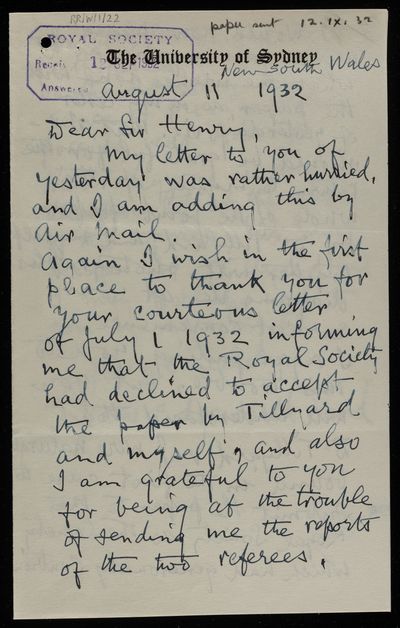 RR/W/1/22
paper sent 12.IX.32
ROYAL SOCIETY
The University of Sydney
New South Wales
Answered
August 11 1932
Dear Sir Henry,
My letter to you of
yesterday was rather hurried,
and I am adding this by
Air Mail.
Again I wish in the first
place to thank you for
your courteous letter
of July 1 1932 informing
me that the Royal Society
had declined to accept
the paper by Tillyard
and myself, and also
I am grateful to you
for being at the trouble
of sending me the reports
of the two referees.